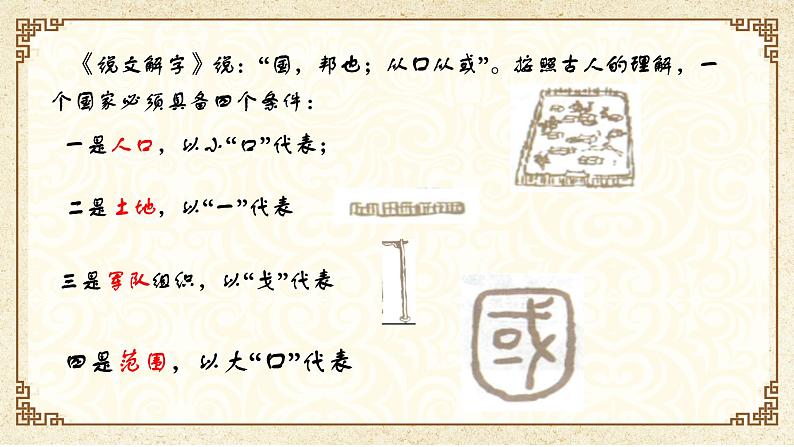 《说文解字》说：“国，邦也；从口从或”。按照古人的理解，一
个国家必须具备四个条件：
一是人口，以小“口”代表；
二是土地，以“一”代表
三是军队组织，以“戈”代表
四是范围，以大“口”代表
或